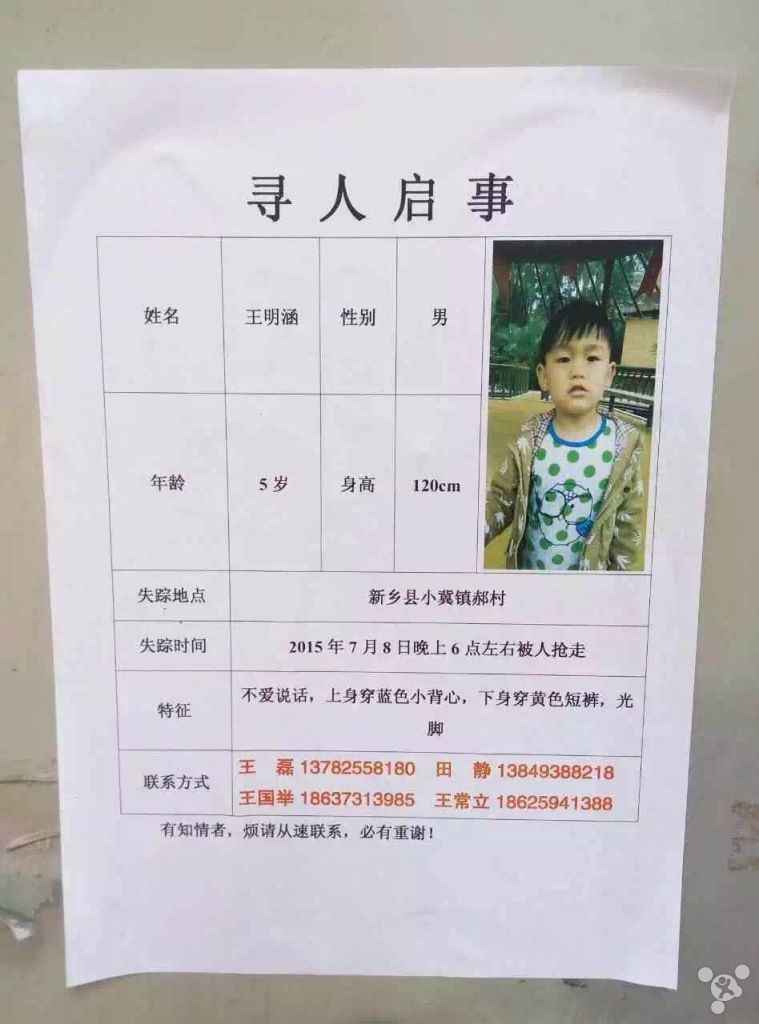 寻人启事
姓名 王明涵 性别 男
年龄 5岁 身高 120cm
失踪地点 新乡县小冀镇郝村
失踪时间 2015年7月8日晚上6点左右被人抢走
特征 不爱说话，上身穿蓝色小背心，下身穿黄色短裤，光
脚
联系方式 王 磊 13782558180 田 静 13849388218
王国举 18637313985 王常立 18625941388
有知情者，烦请从速联系，必有重谢！